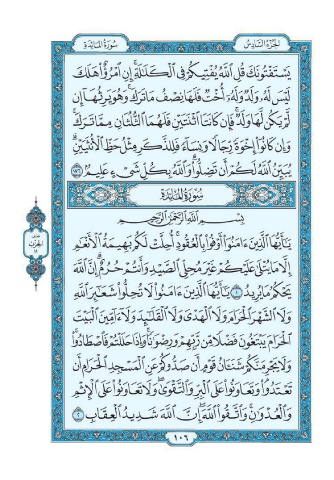 الجزء السادس
سورة المائدة
يَسْتَفْتُونَكَ قُلِ ٱللَّهُ يُفْتِيكُمْ فِى ٱلْكَلَٰلَةِ إِنِ ٱمْرُؤٌا۟ هَلَكَ
لَيْسَ لَهُۥ وَلَدٌ وَلَهُۥٓ أُخْتٌ فَلَهَا نِصْفُ مَا تَرَكَ وَهُوَ يَرِثُهَآ إِن
لَّمْ يَكُن لَّهَا وَلَدٌ فَإِن كَانَتَا ٱثْنَتَيْنِ فَلَهُمَا ٱلثُّلُثَانِ مِمَّا تَرَكَ
وَإِن كَانُوٓا۟ إِخْوَةً رِّجَالًا وَنِسَآءً فَلِلذَّكَرِ مِثْلُ حَظِّ ٱلْأُنثَيَيْنِ
يُبَيِّنُ ٱللَّهُ لَكُمْ أَن تَضِلُّوا۟ وَٱللَّهُ بِكُلِّ شَىْءٍ عَلِيمٌۢ ١٧٦
سورة المائدة
بِسْمِ ٱللَّهِ ٱلرَّحْمَٰنِ ٱلرَّحِيمِ
يَٰٓأَيُّهَا ٱلَّذِينَ ءَامَنُوٓا۟ أَوْفُوا۟ بِٱلْعُقُودِ أُحِلَّتْ لَكُم بَهِيمَةُ ٱلْأَنْعَٰمِ
إِلَّا مَا يُتْلَىٰ عَلَيْكُمْ غَيْرَ مُحِلِّى ٱلصَّيْدِ وَأَنتُمْ حُرُمٌ إِنَّ ٱللَّهَ
يَحْكُمُ مَا يُرِيدُ ١ يَٰٓأَيُّهَا ٱلَّذِينَ ءَامَنُوا۟ لَا تُحِلُّوا۟ شَعَٰٓئِرَ ٱللَّهِ
وَلَا ٱلشَّهْرَ ٱلْحَرَامَ وَلَا ٱلْهَدْىَ وَلَا ٱلْقَلَٰٓئِدَ وَلَآ ءَآمِّينَ ٱلْبَيْتَ
ٱلْحَرَامَ يَبْتَغُونَ فَضْلًا مِّن رَّبِّهِمْ وَرِضْوَٰنًا وَإِذَا حَلَلْتُمْ فَٱصْطَادُوا۟
وَلَا يَجْرِمَنَّكُمْ شَنَـَٔانُ قَوْمٍ أَن صَدُّوكُمْ عَنِ ٱلْمَسْجِدِ ٱلْحَرَامِ أَن
تَعْتَدُوا۟ وَتَعَاوَنُوا۟ عَلَى ٱلْبِرِّ وَٱلتَّقْوَىٰ وَلَا تَعَاوَنُوا۟ عَلَى ٱلْإِثْمِ
وَٱلْعُدْوَٰنِ وَٱتَّقُوا۟ ٱللَّهَ إِنَّ ٱللَّهَ شَدِيدُ ٱلْعِقَابِ ٢
١٠٦